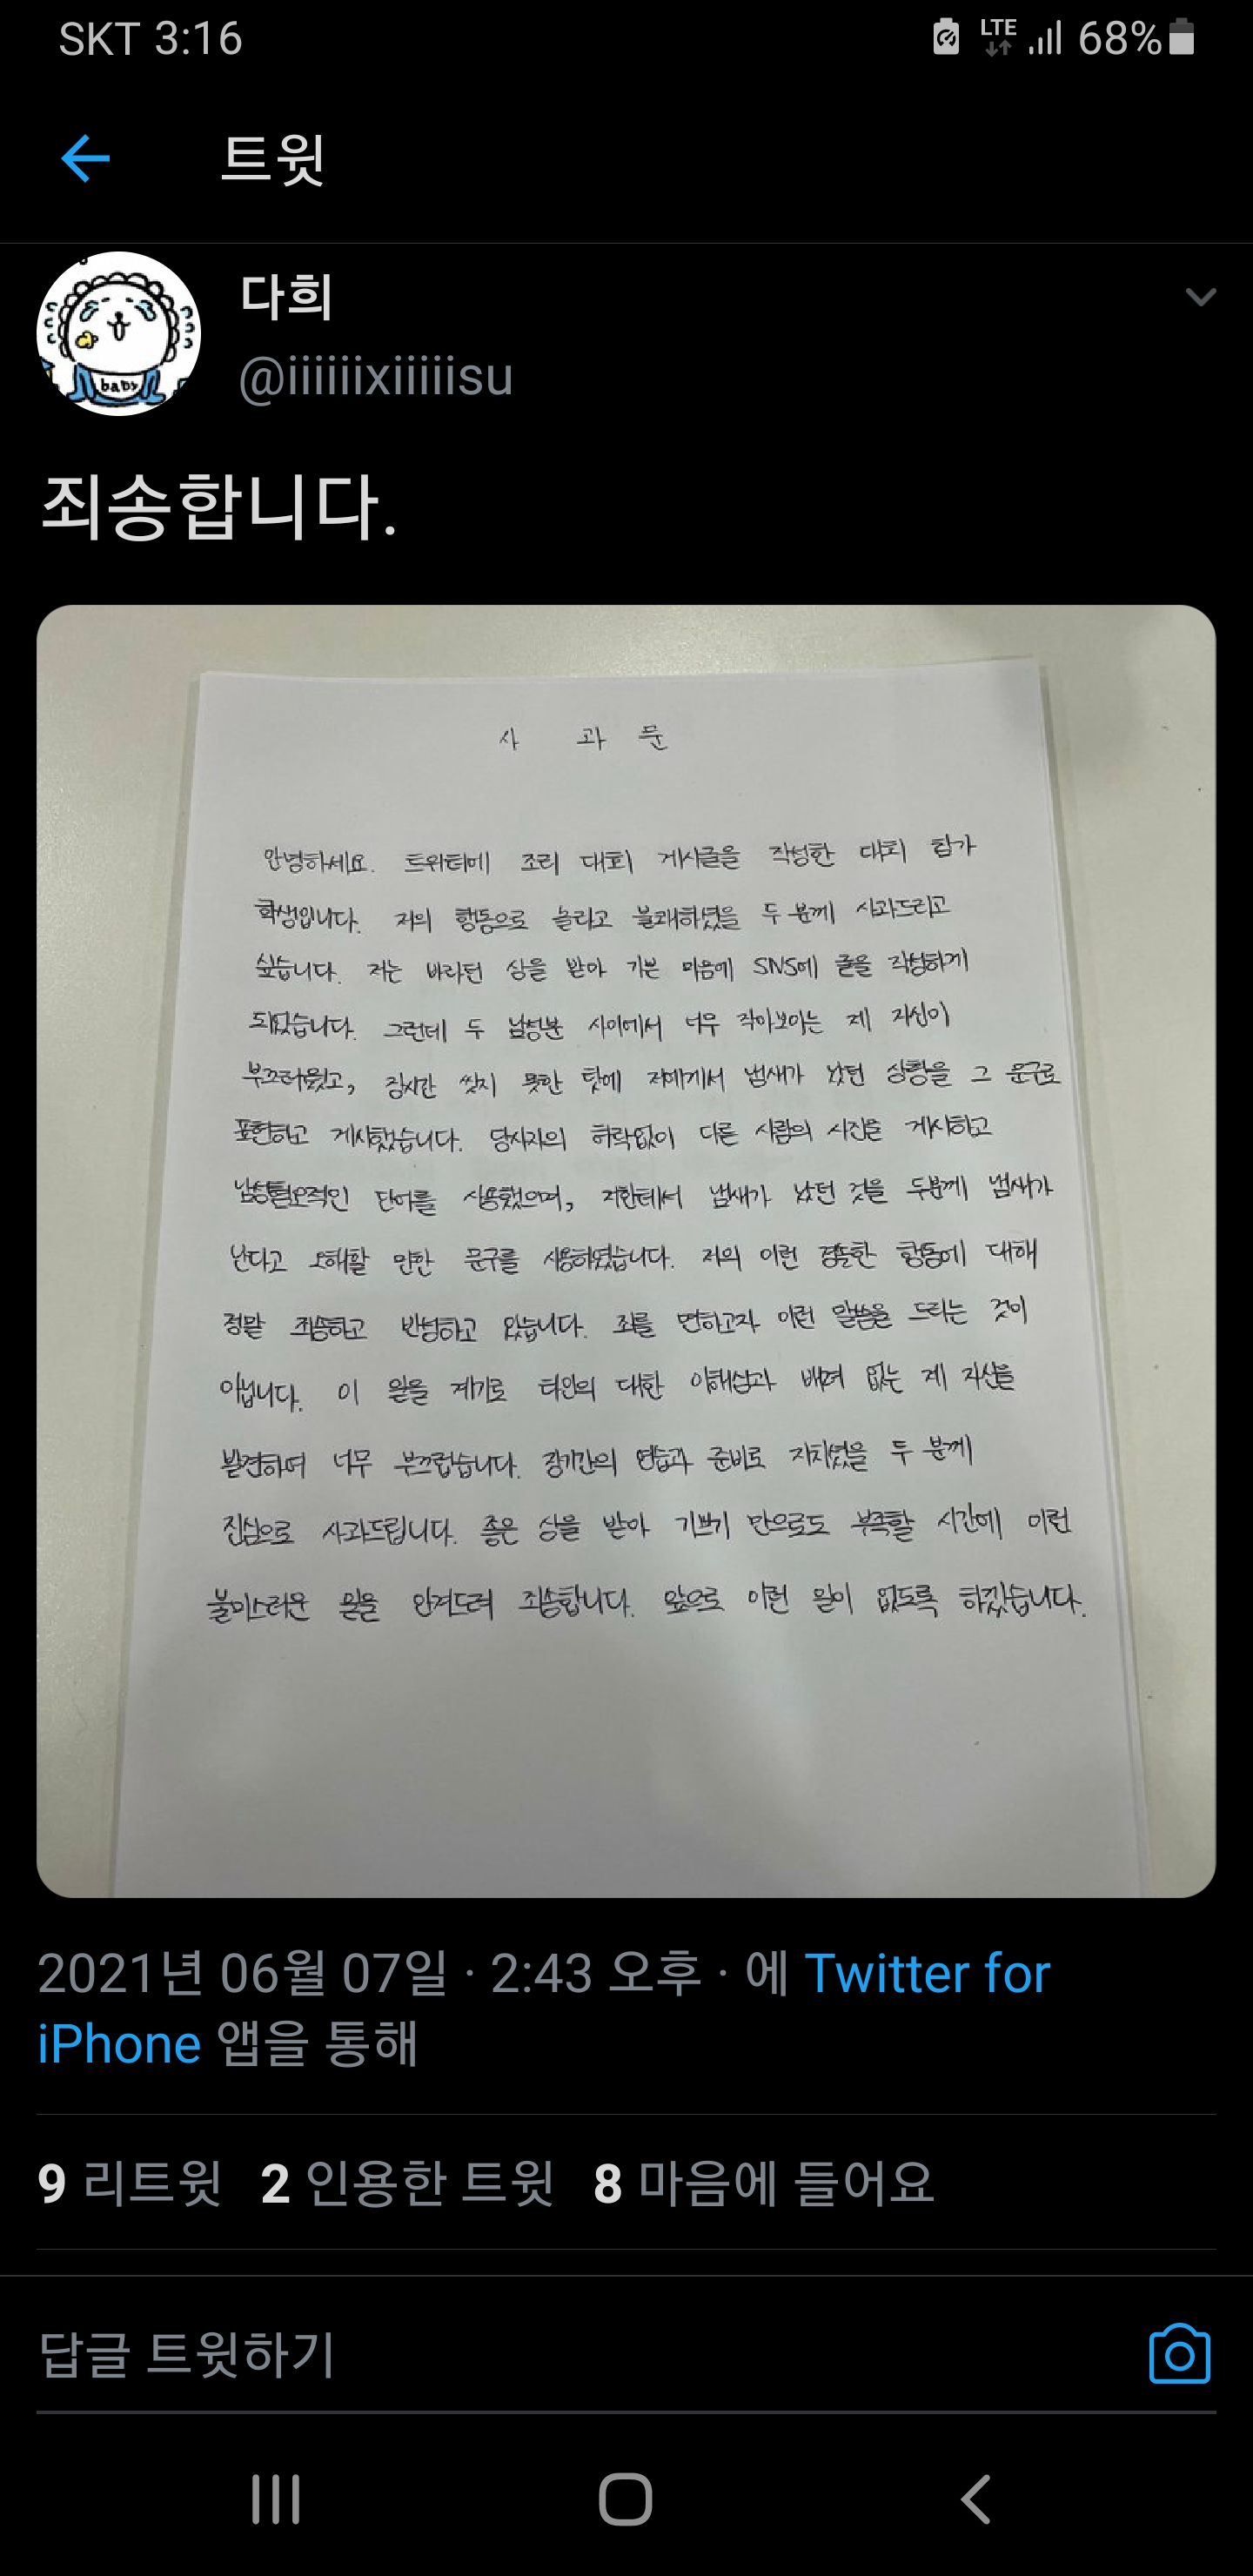 SKT 3:16 LTE 68%
트윗
다희
@iiiiiixiiiiisu
죄송합니다.
baby
사 과 문
안녕하세요. 트위터에 조리 대회 게시글을 작성한 대회 참가
학생입니다. 저의 행동으로 놀라고 불쾌하셨을 두 분께 사과드리고
싶습니다. 저는 바라던 상을 받아 기쁜 마음에 SNS에 글을 작성하게
되었습니다. 그런데 두 남성분 사이에서 너무 작아보이는 제 자신이
부끄러웠고, 장시간 씻지 못한 탓에 저에게서 냄새가 났던 상황을 그 문구로
표현하고 게시했습니다. 당사자의 허락없이 다른 사람의 사진을 게시하고
남성혐오적인 단어를 사용했으며, 저한테서 냄새가 났던 것을 두분께 냄새가
난다고 오해할 만한 문구를 사용하였습니다. 저의 이런 경솔한 행동에 대해
정말 죄송하고 반성하고 있습니다. 죄를 면하고자 이런 말씀을 드리는 것이
아닙니다. 이 일을 계기로 타인의 대한 이해심과 배려 없는 제 자신을
발견하며 너무 부끄럽습니다. 장기간의 연습과 준비로 지치셨을 두 분께
진심으로 사과드립니다. 좋은 상을 받아 기쁘기 만으로도 부족할 시간에 이런
불미스러운 일을 안겨드려 죄송합니다. 앞으로 이런 일이 없도록 하겠습니다.
2021년 06월 07일 · 2:43 오후 · 에 Twitter for
iPhone 앱을 통해
9 리트윗 2 인용한 트윗 8 마음에 들어요
답글 트윗하기